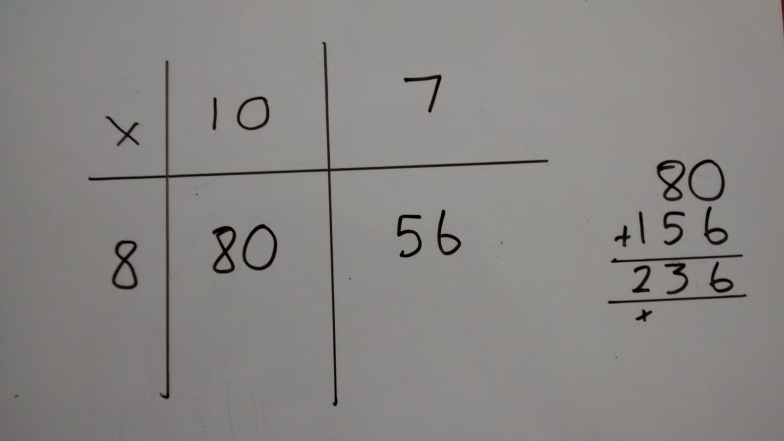 × 10 7
8 80 56
80
+156
236
×